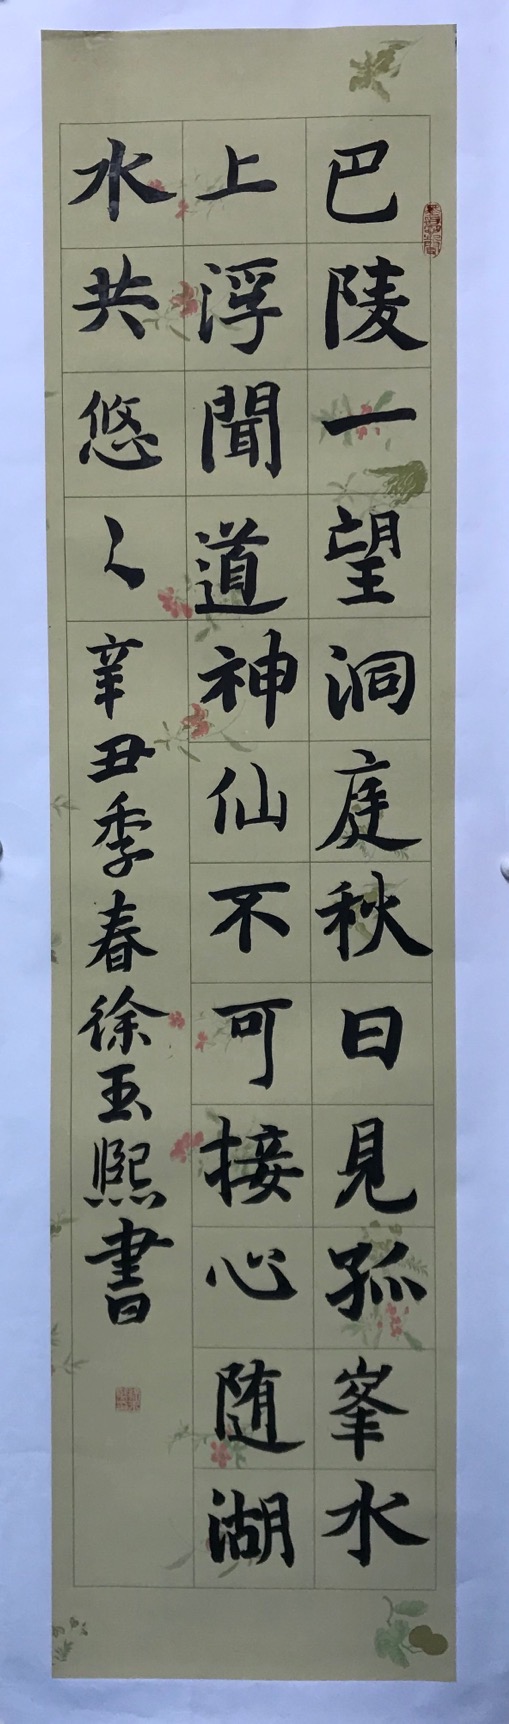 巴陵一望洞庭秋日見孤峯水
上浮聞道神仙不可接心随湖
水共悠々辛丑季春徐玉熙書